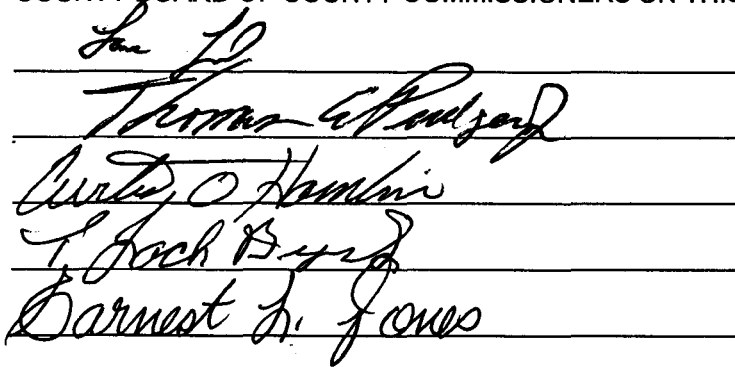 COUNTY BOARD OF COUNTY COMMISSIONERS ON THIS
Thomas E
Curtis O Hamlin
T. Zach Byrd
Earnest L. Jones